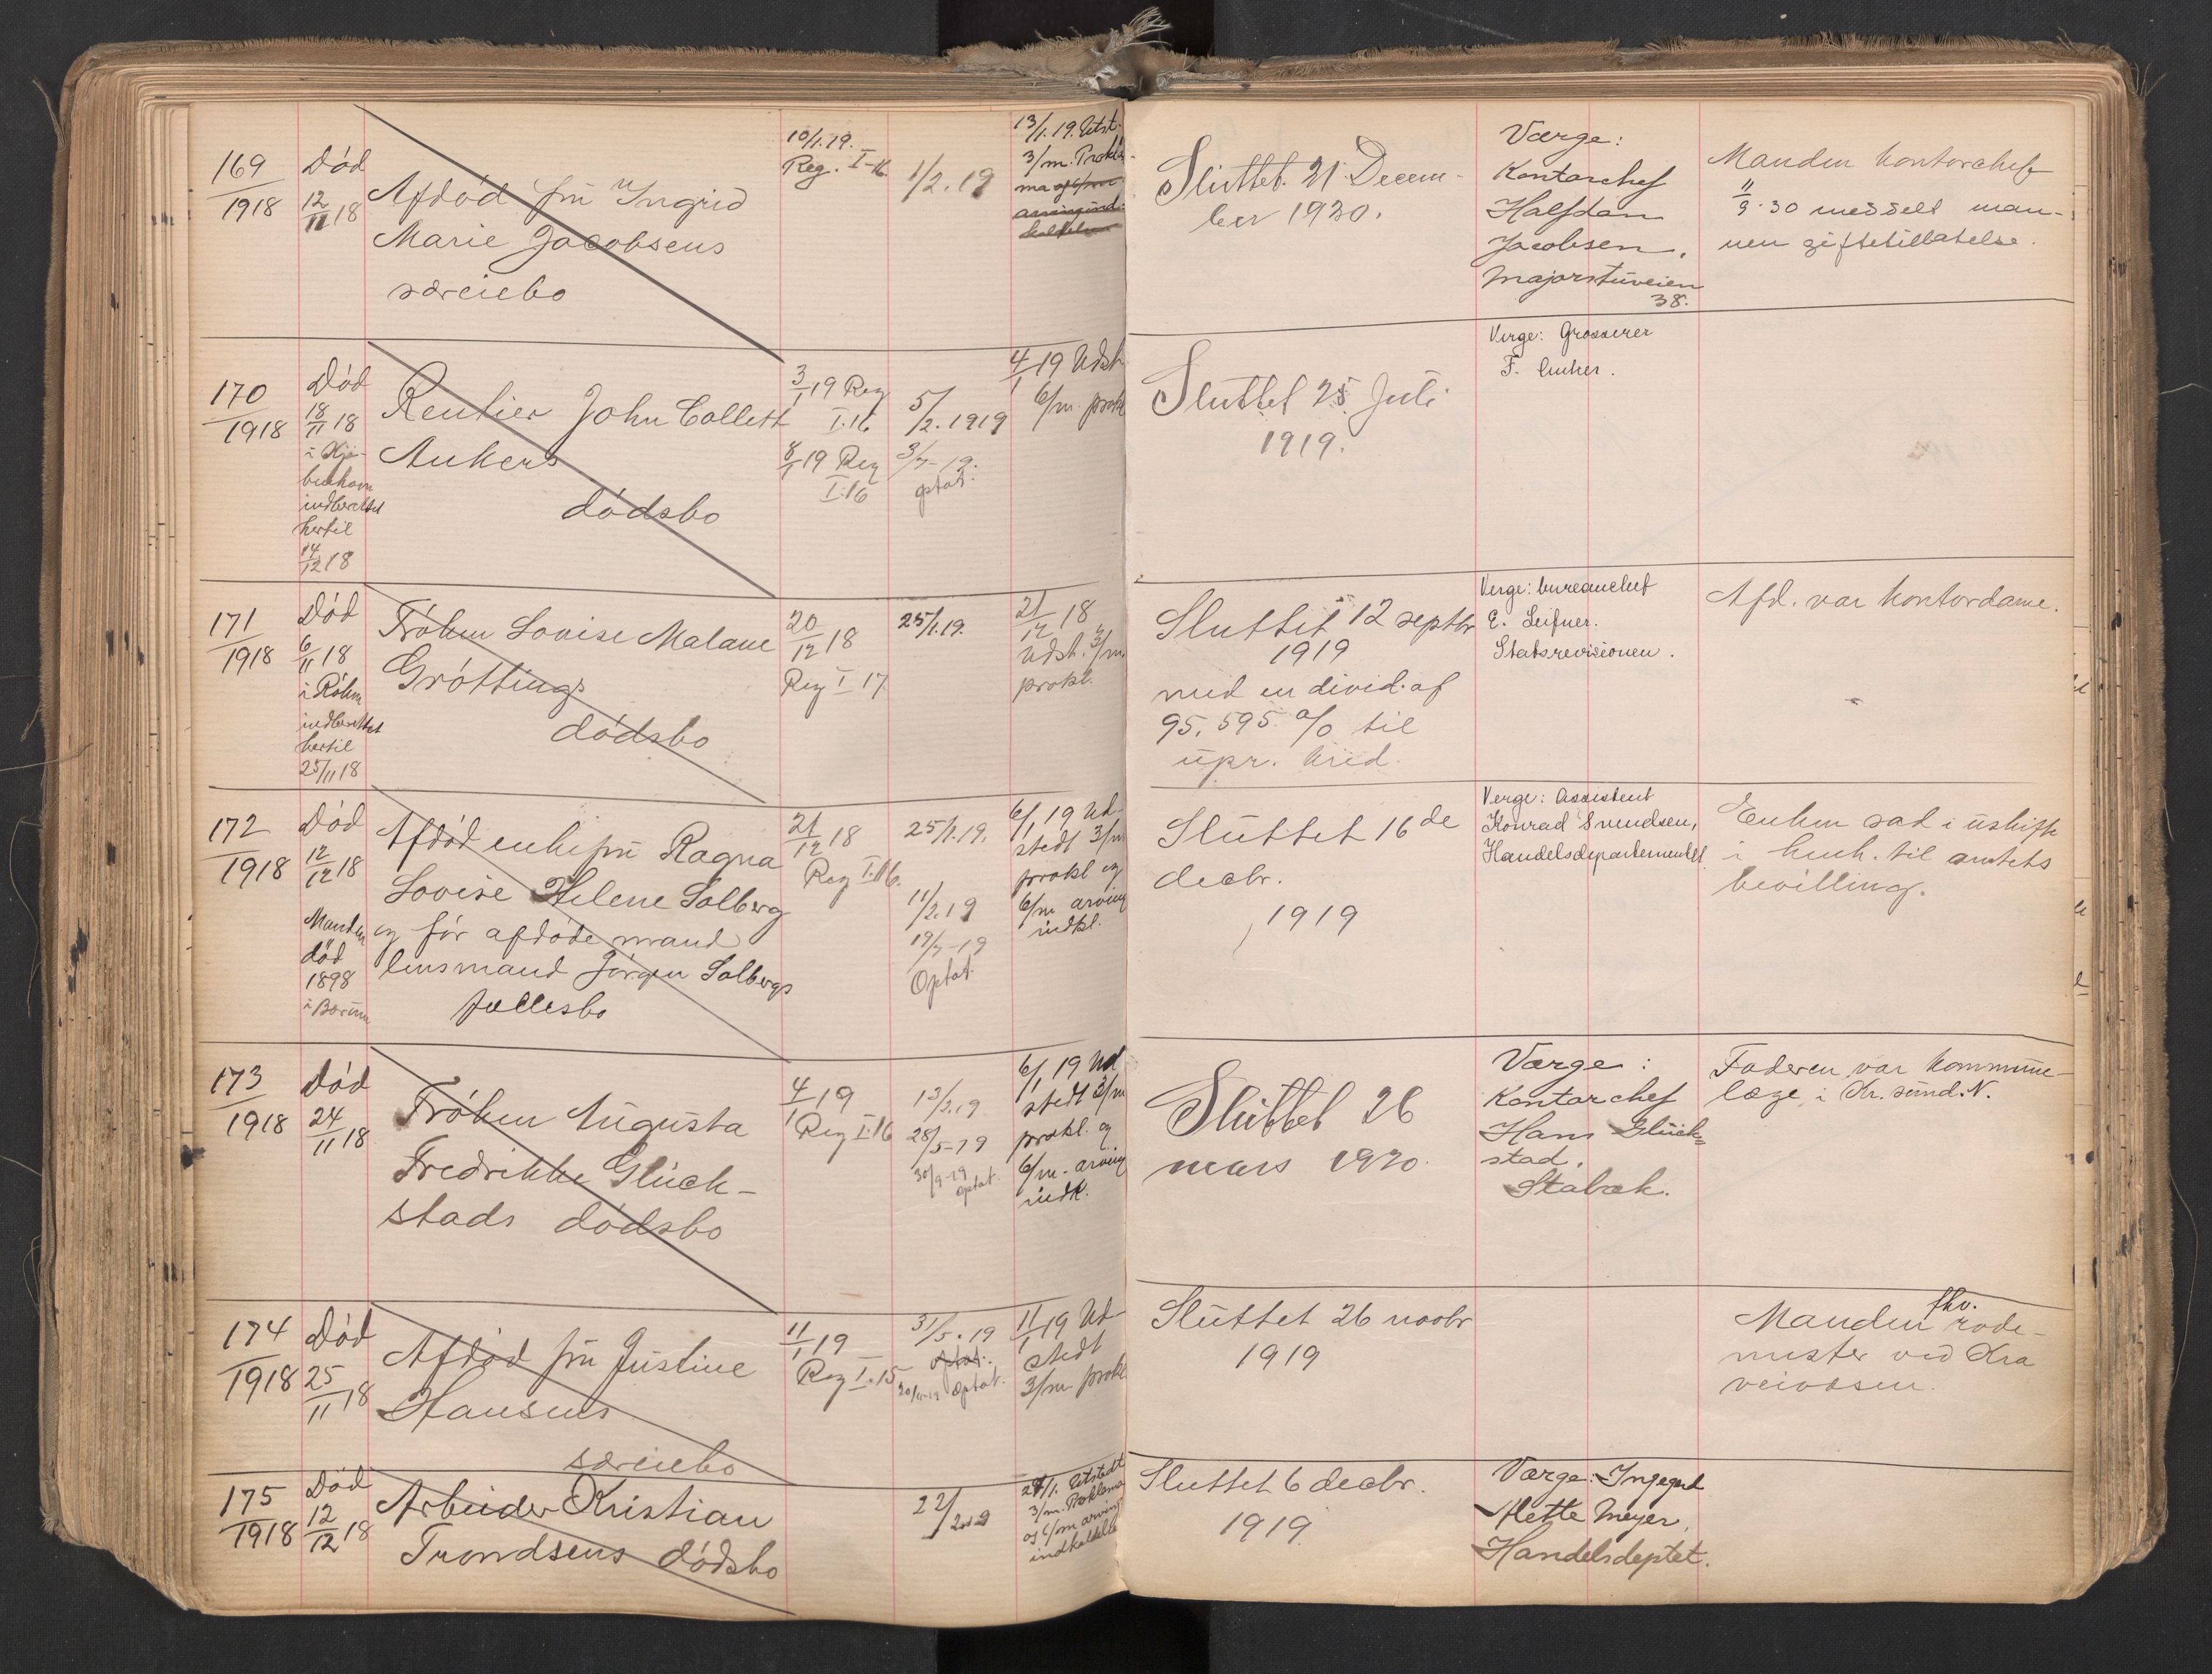 169
1918
Død
12/11 18
Afdød fru Ingrid
Marie Jacobsens
særeiebo
10/1.19.
Reg. I-16
1/2.19
13/1.19. Utst.
3/m. Prokla-
ma og 6/m
Sluttet. 21 Decem-
ber 1920.
Værge:
Kontorchef
Halfdan
Jacobsen,
Majorstuveien
38.
Manden kontorchef
11/9.30 meddelt man-
nen giftetillatelse.
170
1918
Død
18/11 18
i Kjø-
benhavn
indberettet
hertil
14/12 18
Rentier John Collett
Ankers
dødsbo
3/1 19 Reg
I.16
8/1 19 Reg
I.16
5/2.1919
3/7-19.
optat.
4/1 19 Udst.
6/m. prokl
Sluttet 25 Juli
1919.
Verge: Grosserer
F. Anker.
171
1918
Død
6/11 18
indberettet
hertil
25/11 18
Frøken Lovise Malane
Grøttings
dødsbo
20/12 18
Reg I 17
25/1.19.
21/12 18
Udst. 3/m.
prokl.
Sluttet 12 septbr
1919
med en divid. af
95,595 o/o til
upr. kred.
Verge: bureauchef
E. Leifner.
Statsrevisionen.
Afd. var kontordame.
172
1918
Død
12/12 18
Manden
død
1898
i Bærum
Afdød enkefru Ragna
Lovise Helene Solberg
og før afdøde mand
lensmand Jørgen Solbergs
fællesbo
21/12 18
Reg I.16.
25/1.19.
11/2.19
19/7-19
Optat.
6/1 19 Ud-
stedt 3/m
prokl og
6/m arving
indkl.
Sluttet 16de
decbr.
1919
Verge: Assistent
Konrad Svendsen,
Handelsdepartementet
Enken sad i uskifte
i henh. til amtets
bevilling.
173
1918
Død
24/11 18
Frøken Augusta
Fredrikke Glück-
stads dødsbo
4/1 19
Reg I.16
13/2.19
28/5-19
30/9-19
optat.
6/1 19 Ud
stedt 3/m
prokl. og
6/m. arving
indk.
Sluttet 26
mars 1920.
Værge:
Kontorchef
Hans Glück-
stad,
Stabæk.
Faderen var kommune-
læge i Kr.sund. N.
174
1918
Død
25/11 18
Afdød fru Justine
Hansens
særeiebo
11/1 19
Reg I.15
31/5.19
optat.
Optat.
11/1 19 Ud-
stedt
3/m. prokl
Sluttet 26 novbr
1919
Manden fhv. rode-
mester ved Kra
veivæsen.
175
1918
Død
12/12 18
Arbeider Kristian
Trondsens dødsbo
Utstedt
3/m. Proklama
og 6/m arving
indkaldelse
Sluttet 6 decbr.
1919.
Værge:
Mette Meyer,
Handelsdeptet.